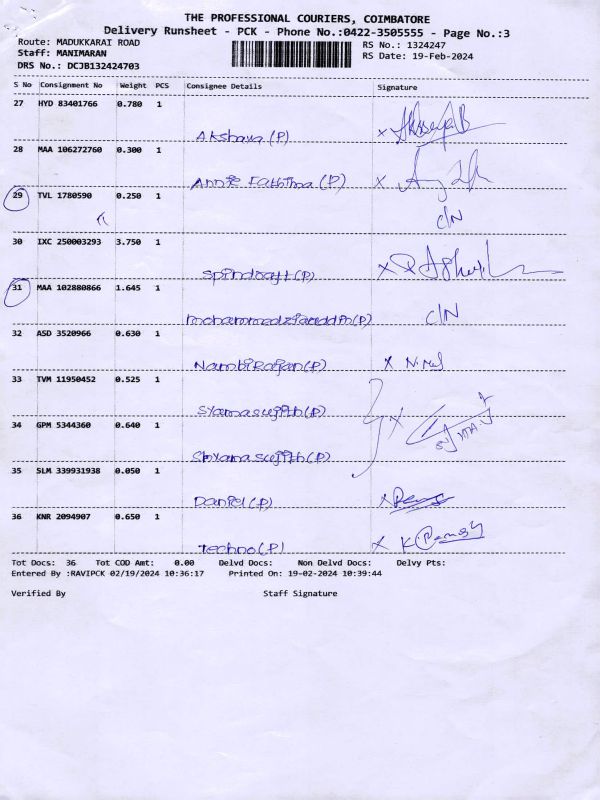 THE PROFESSIONAL COURIERS, COIMBATORE
Delivery Runsheet - PCK - Phone No.:0422-3505555 - Page No.:3
Route: MADUKKARAI ROAD RS No.: 1324247
Staff: MANIMARAN RS Date: 19-Feb-2024
DRS No.: DCJB132424703
S No Consignment No Weight PCS Consignee Details Signature
27 HYD 83401766 0.780 1
Akshaya (P) x
28 MAA 106272760 0.300 1
Annie Faththma (P) x
29 TVL 1780590 0.250 1
C/N
30 IXC 250003293 3.750 1
(P) x
31 MAA 102880866 1.645 1
(P) C/N
32 ASD 3520966 0.630 1
Nambi Rajan (P) x
33 TVM 11950452 0.525 1
Syamasujith (P) x
34 GPM 5344360 0.640 1
Shyamasujith (P)
35 SLM 339931938 0.050 1
Daniel (P) x
36 KNR 2094907 0.650 1
Techno (P) x
Tot Docs: 36 Tot COD Amt: 0.00 Delvd Docs: Non Delvd Docs: Delvy Pts:
Entered By :RAVIPCK 02/19/2024 10:36:17 Printed On: 19-02-2024 10:39:44
Verified By Staff Signature